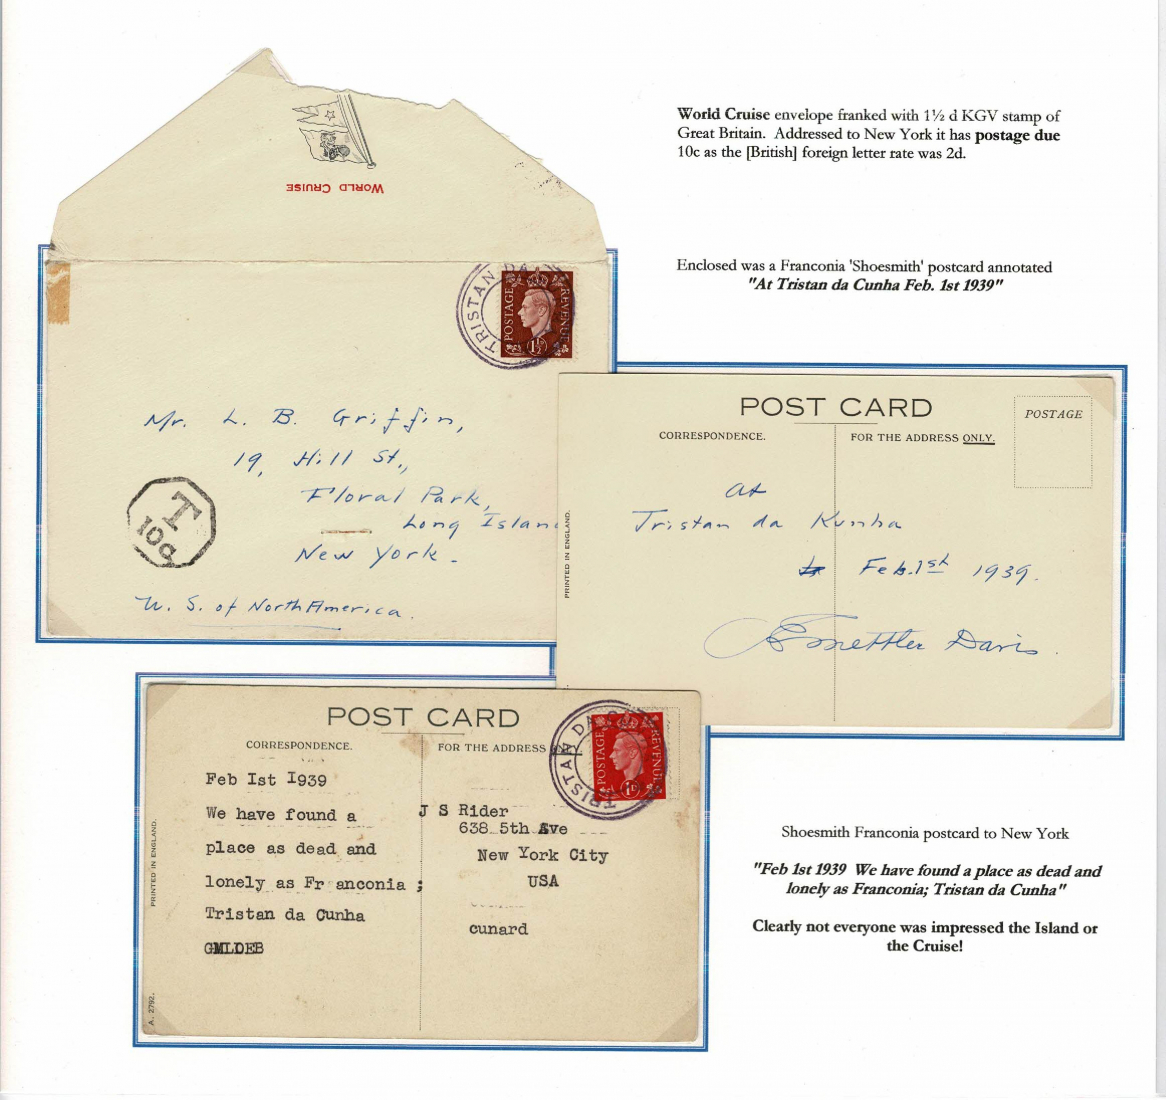 World Cruise envelope franked with 1½ d KGV stamp of
Great Britain. Addressed to New York it has postage due
10c as the [British] foreign letter rate was 2d.
WORLD CRUISE
Enclosed was a Franconia 'Shoesmith' postcard annotated
"At Tristan da Cunha Feb. 1st 1939"
TRISTAN DA
POSTAGE REVENUE
1½D
Mr. L. B. Griffin,
19, Hill St.,
Floral Park,
Long Island
New York.
U. S. of North America.
T
10c
POST CARD
CORRESPONDENCE.
FOR THE ADDRESS ONLY.
POSTAGE
PRINTED IN ENGLAND.
At
Tristan da Kunha
Feb. 1st 1939.
Davis
POST CARD
CORRESPONDENCE.
FOR THE ADDRESS
TRISTAN DA
POSTAGE REVENUE
1D
PRINTED IN ENGLAND.
A. 2792.
Feb Ist I939
We have found a
place as dead and
lonely as Fr anconia ;
Tristan da Cunha
J S Rider
638 5th Ave
New York City
USA
cunard
Shoesmith Franconia postcard to New York
"Feb 1st 1939 We have found a place as dead and
lonely as Franconia; Tristan da Cunha"
Clearly not everyone was impressed the Island or
the Cruise!